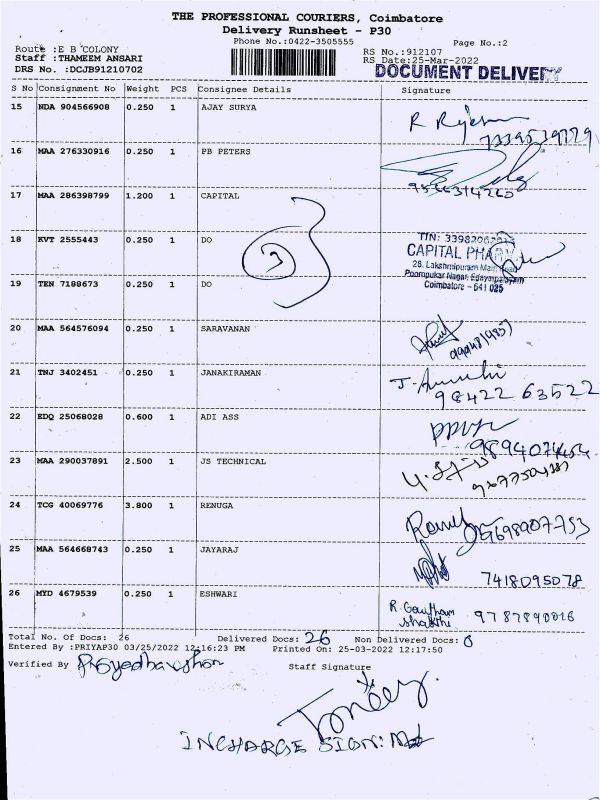 THE PROFESSIONAL COURIERS, Coimbatore
Delivery Runsheet - P30
Phone No.:0422-3505555
Page No.:2
Route :E B COLONY
RS No.:912107
Staff :THAMEEM ANSARI
RS Date:25-Mar-2022
DRS No. :DCJB91210702
DOCUMENT DELIVERY
S No Consignment No Weight PCS Consignee Details Signature
15 NDA 904566908 0.250 1 AJAY SURYA
16 MAA 276330916 0.250 1 PB PETERS
17 MAA 286398799 1.200 1 CAPITAL
18 KVT 2555443 0.250 1 DO
3
CAPITAL
28. Lakshmipuram Main Road
Poompukar Nagar, Edayarpalayam
Coimbatore - 641 025
19 TEN 7188673 0.250 1 DO
20 MAA 564576094 0.250 1 SARAVANAN
21 TNJ 3402451 0.250 1 JANAKIRAMAN
98422 63522
22 EDQ 25068028 0.600 1 ADI ASS
23 MAA 290037891 2.500 1 JS TECHNICAL
24 TCG 40069776 3.800 1 RENUGA
9698907753
25 MAA 564668743 0.250 1 JAYARAJ
7418095078
26 MYD 4679539 0.250 1 ESHWARI
R. Gowtham
Shakthi
Total No. Of Docs: 26 Delivered Docs: 26 Non Delivered Docs: 0
Entered By :PRIYAP30 03/25/2022 12:16:23 PM Printed On: 25-03-2022 12:17:50
Verified By
Staff Signature
INCHARGE SIGN: